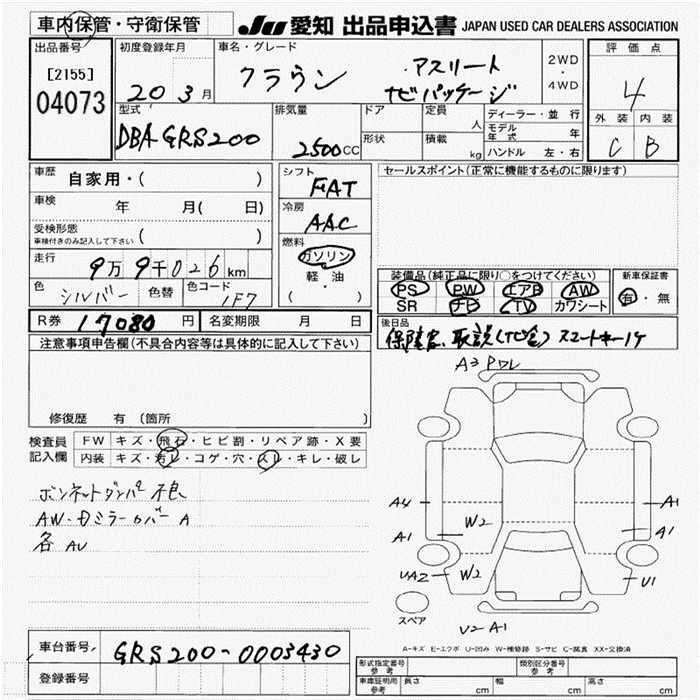 車内保管・守衛保管
JU 愛知 出品申込書 JAPAN USED CAR DEALERS ASSOCIATION
出品番号
[2155]
04073
初度登録年月
20 3月
車名・グレード
クラウン アスリート
ナビパッケージ
2WD
・
4WD
評価点
4
外装 内装
C B
型式
DBA GRS200
排気量
2500CC
ドア
形状
定員 人
積載 kg
ディーラー・並行
モデル年式 年
ハンドル 左・右
車歴
自家用・( )
車検
年 月( 日)
受検形態
車検付きのみ記入して下さい ( )
走行
9万9千026km
色 シルバー 色替 色コード 1F7
シフト
FAT
冷房
AAC
燃料
ガソリン
軽・油
( )
セールスポイント(正常に機能するものに限ります)
装備品(純正品に限り○をつけてください)
PS PW エアB AW
SR ナビ TV カワシート
新車保証書
有・無
R券 17080円 名変期限 月 日
後日品
保証書、取説(ナビ含) スマートキー1ケ
注意事項申告欄(不具合内容等は具体的に記入して下さい)
修復歴 有(箇所 )
検査員
記入欄
FW キズ・飛石・ヒビ割・リペア跡・X要
内装 キズ・汚レ・コゲ・穴・スレ・キレ・破レ
ボンネットダンパー不良
AW・Dミラーカバー A
各AU
A3 PDL
A4
A1
UA2
W2
W2
A1
A1
U1
スペア
U2 A1
A-キズ E-エクボ U-凹み W-補修跡 S-サビ C-腐食 XX-交換済
車台番号 GRS200-0003430
登録番号
形式指定番号
参考
類別区分番号
参考
車庫証明用
参考
長さ cm 幅 cm 高さ cm